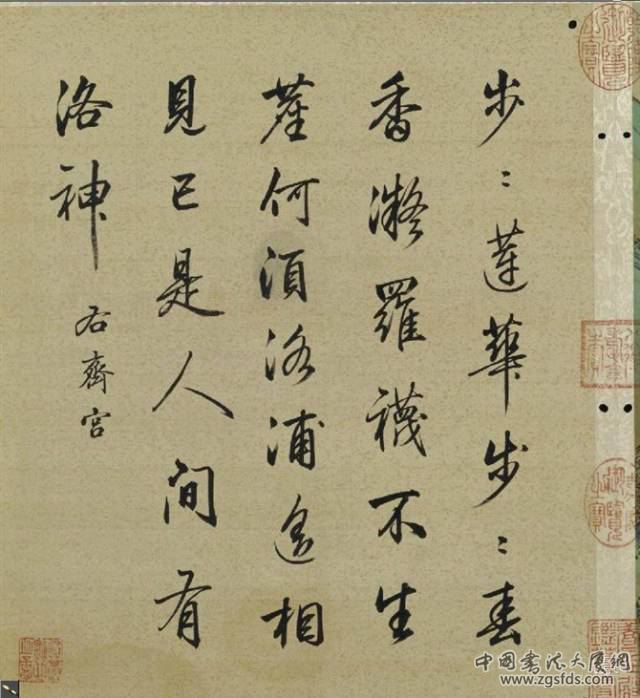 步〻蓮華步〻春
香凝羅襪不生
塵何須洛浦遙相
見已是人間有
洛神
右齊宮
中國書法大廈網
www.zgsfds.com